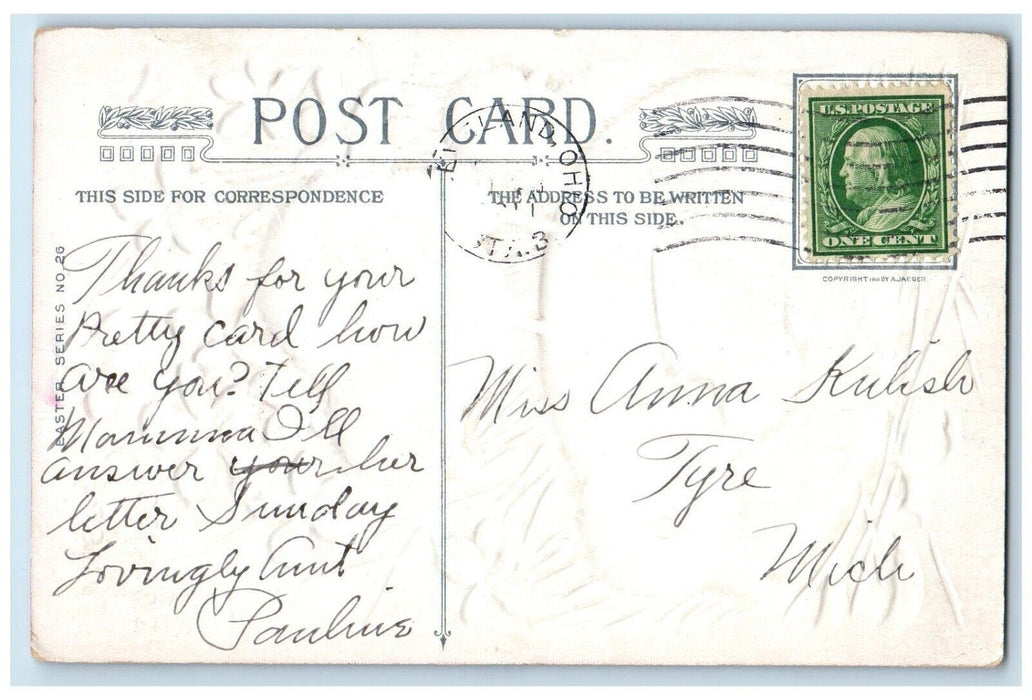 POST CARD.
THIS SIDE FOR CORRESPONDENCE
THE ADDRESS TO BE WRITTEN
ON THIS SIDE.
OHIO
STA.3
U.S.POSTAGE
ONE CENT
COPYRIGHT 1910 BY A.JAEGER
EASTER SERIES NO. 26
Thanks for your
Pretty card how
are you? Tell
Mamma I'll
answer your her
letter Sunday
Lovingly Aunt
Pauline
Miss Anna Kulish
Tyre
Mich